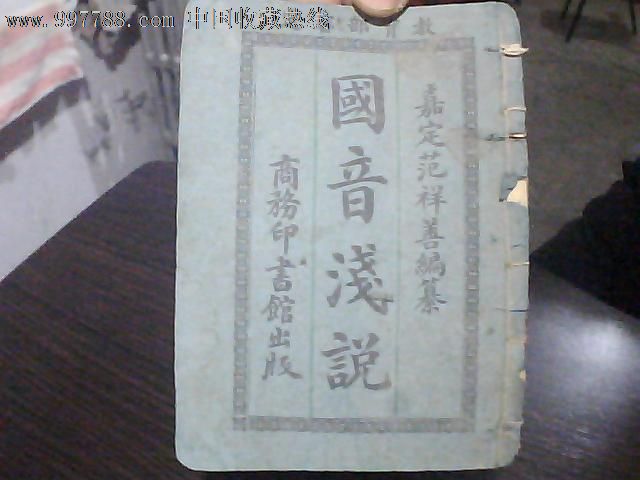 www.997788.com 中国收藏热线
教育部
嘉定范祥善編纂
國音淺説
商務印書館出版